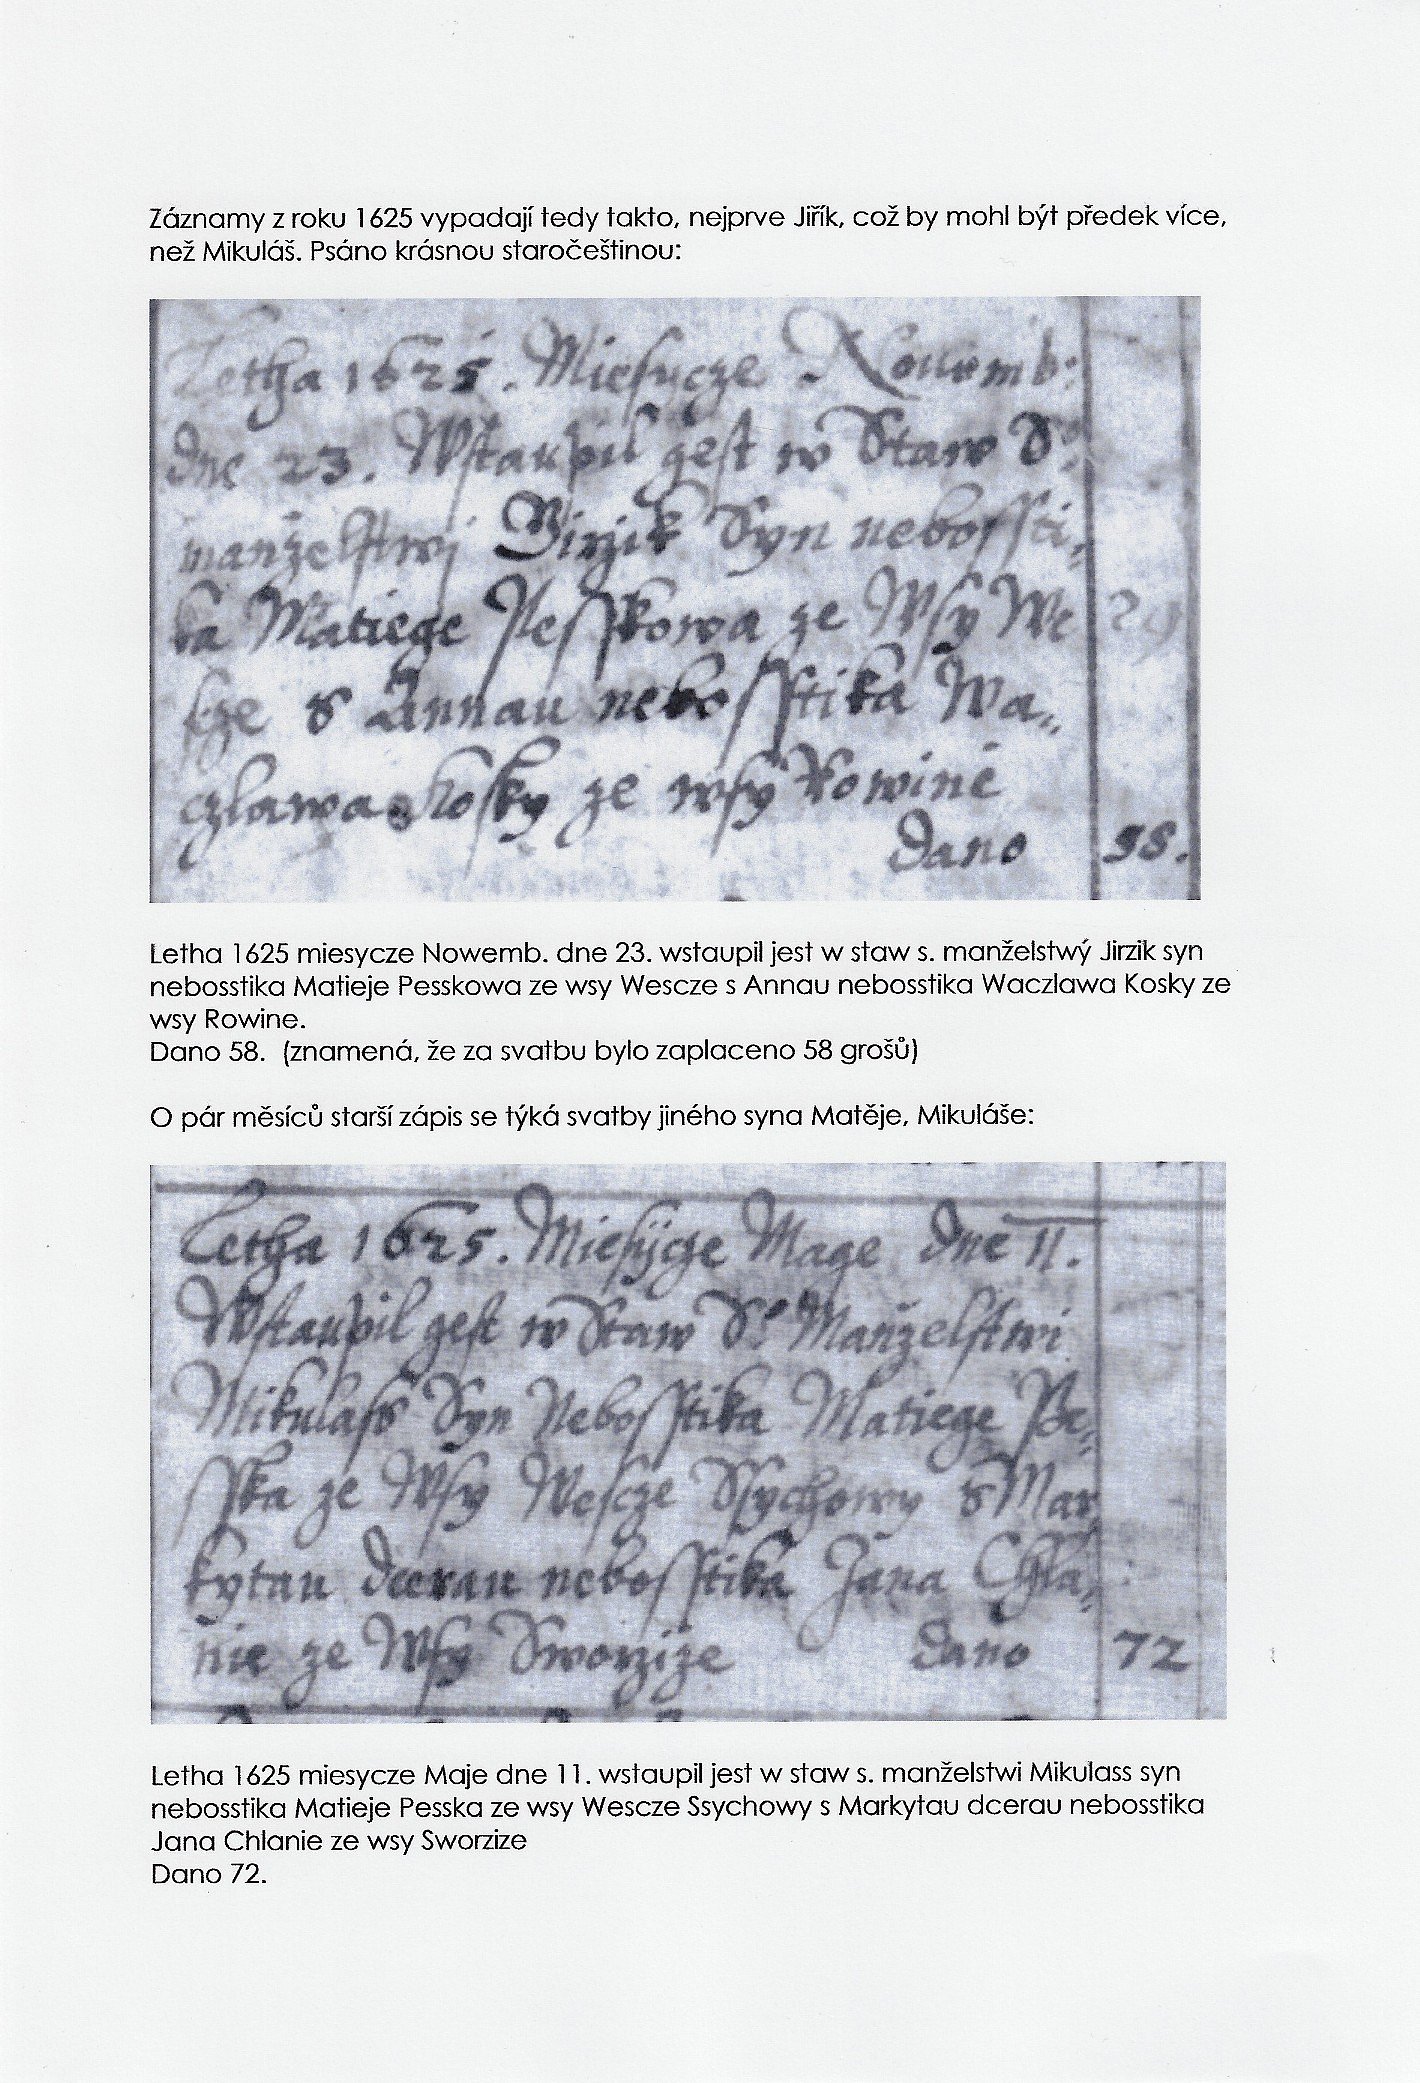 Záznamy z roku 1625 vypadají tedy takto, nejprve Jiřík, což by mohl být předek více,
než Mikuláš. Psáno krásnou staročeštinou:
Letha 1625. Miesycze Nouemb:
dne 23. Wstaupil gest w Staw S:
manželstwj Girzik Syn nebossti-
ka Matiege Pesskowa ze Wsy We
scze s Annau nebosstika Wa-
czlawa Kosky ze wsy Rowine
Dano 58.
Letha 1625 miesycze Nowemb. dne 23. wstaupil jest w staw s. manželstwý Jirzik syn
nebosstika Matieje Pesskowa ze wsy Wescze s Annau nebosstika Waczlawa Kosky ze
wsy Rowine.
Dano 58. (znamená, že za svatbu bylo zaplaceno 58 grošů)
O pár měsíců starší zápis se týká svatby jiného syna Matěje, Mikuláše:
Letha 1625. Miesycze Mage dne 11.
Wstaupil gest w Staw S: Manželstwi
Mikulass Syn Nebosstika Matiege Pe-
sska ze Wsy Wescze Ssychowy s Mar
kytau dcerau nebosstika Jana Chla-
nie ze Wsy Sworzize Dano 72
Letha 1625 miesycze Maje dne 11. wstaupil jest w staw s. manželstwi Mikulass syn
nebosstika Matieje Pesska ze wsy Wescze Ssychowy s Markytau dcerau nebosstika
Jana Chlanie ze wsy Sworzize
Dano 72.